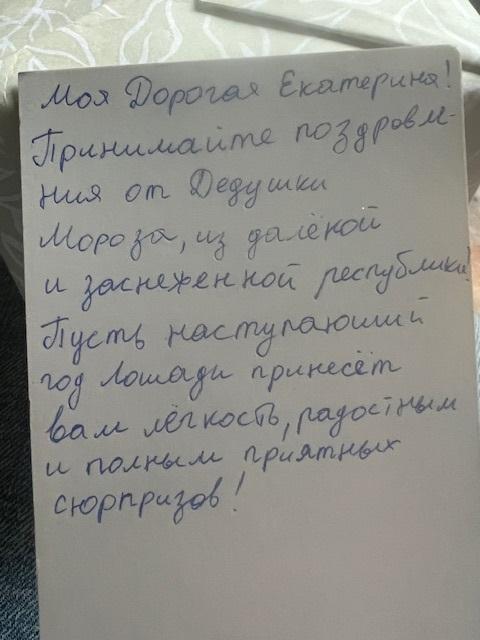 Моя Дорогая Екатерина!
Принимайте поздравле-
ния от Дедушки
Мороза, из далёкой
и заснеженной республики!
Пусть наступающий
год Лошади принесёт
вам лёгкость, радостным
и полным приятных
сюрпризов!